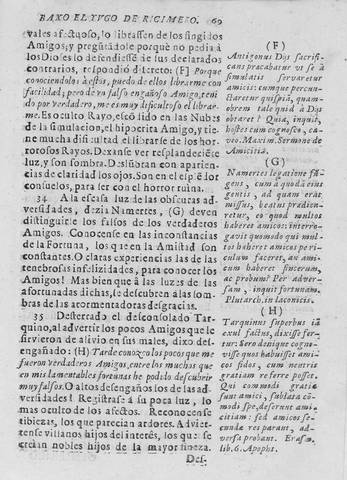 BAXO EL YUGO DE RICIMERO. 69
vales afectuoso, lo librassen de los fingidos
Amigos; y preguntandole porquè no pedia à
los Dioses lo defendiesse de sus declarados
contrarios, respondiò discreto: (F) Porque
conociendolos à estos, puedo librarme con
facilidad; pero de un falso engañoso Amigo, teni
do por verdadero, me es muy dificultoso el librar-
me. Es oculto Rayo, escondido en las Nubes
de la simulacion, el hipocrita Amigo, y tie-
ne mucha dificultad el librarse de los hor-
rorosos Rayos. Dexanse ver resplandeciēte
luz, y son sombra. Deslumbra con aparien-
cias de claridad los ojos. Son en el espejo
consuelos, para ser con el horror ruina.
34 A la escasa luz de las obscuras ad-
versidades, dezia Namertes, (G) deven
distinguirse los falsos de los verdaderos
Amigos. Conocense en las inconstancias
de la Fortuna, los que en la Amistad son
constantes. O claras experiencias las de las
tenebrosas infelizidades, para conocer los
Amigos! Mas bien que à las luzes de las
afortunadas dichas, se descubren à las som-
bras de las atormentadoras desgracias.
35 Desterrado el desconsolado Tar-
quino, al advertir los pocos Amigos que le
sirvieron de alivio en sus males, dixo des-
engañado: (H) Tarde conozco los pocos que me
fueron verdaderos Amigos, entre los muchos que
en mis lamentables fortunas he podido descubrir
muy falsos. O altos desengaños los de las ad-
versidades! Registrase à su poca luz, lo
mas oculto de los afectos. Reconocense
tibiezas, los que parecian ardores. Adviet-
tense villanos hijos del interès, los que se
creian nobles hijos de la mayor fineza.
Des-
(F)
Antigonus Dǒs sacrifi-
cans pracabatur vt se à
simulatis servaretur
amicis: cumque percun-
ctaretur quispiā, quam-
obrem tale quid à Dǒs
obraret? Quia, inquit,
hostes cum cognosco, ca-
veo. Maxim. Sermone de
Amicitia.
(G)
Namertes legatione fū-
gens, cum à quodā eius
gentis, ad quam erat
missus, beatus predien-
retur, eo quod multos
haberet amicos: interro-
gavit quomodo qui mul-
tos haberet amicos peri-
culum faceret, an ami-
cum haberet sincerum,
ac probum? Per adver-
sam, inquit fortunam.
Plutarch. in laconicis.
(H)
Tarquinus superbus iā
exul factus, dixisse fer-
tur: Sero denique cogno-
visse quos habuisset ami-
cos fidos, cum neutris
gratiam referre posset.
Qui commodi gratia
sunt amici, sublata cō-
modi spe, deserunt ami-
cum: ad amicos se-
ros res parant, ad-
versa probant. Erasm.
lib. 6. Apopht.